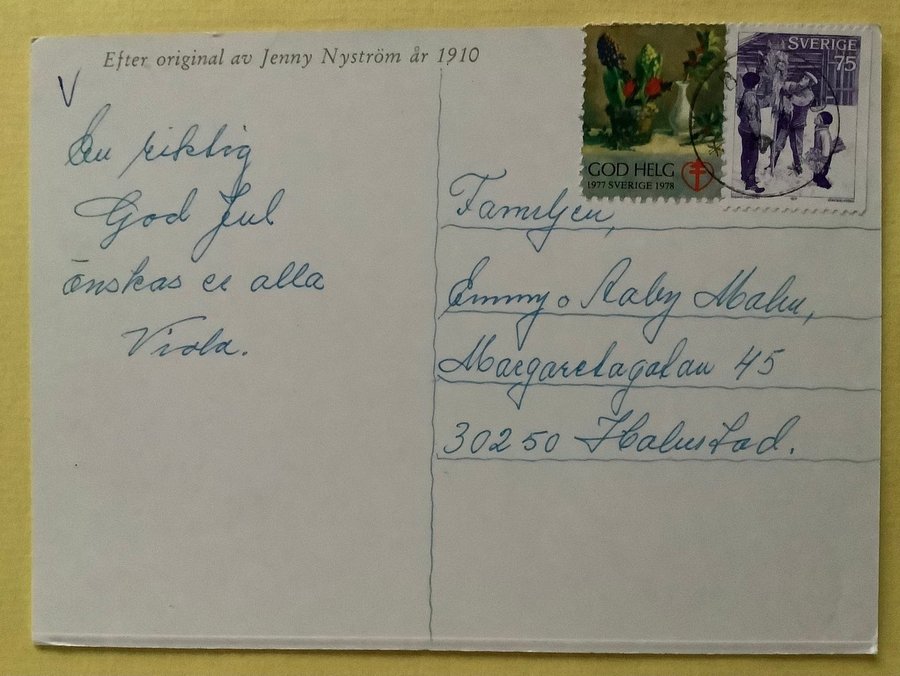 Efter original av Jenny Nyström år 1910
V
En riktig
God Jul
önskas er alla
Viola.
GOD HELG
1977 SVERIGE 1978
SVERIGE
75
Familjen,
Emmy o Raby Malm,
Margaretagatan 45
30250 Halmstad.